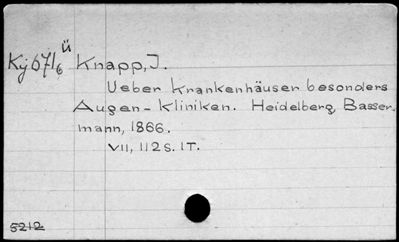 Ky 671/6 ü Knapp, J.
Ueber Krankenhäuser besonders
Augen-Kliniken. Heidelberg, Basser-
mann, 1866.
VII, 112 S. 1 T.
5212